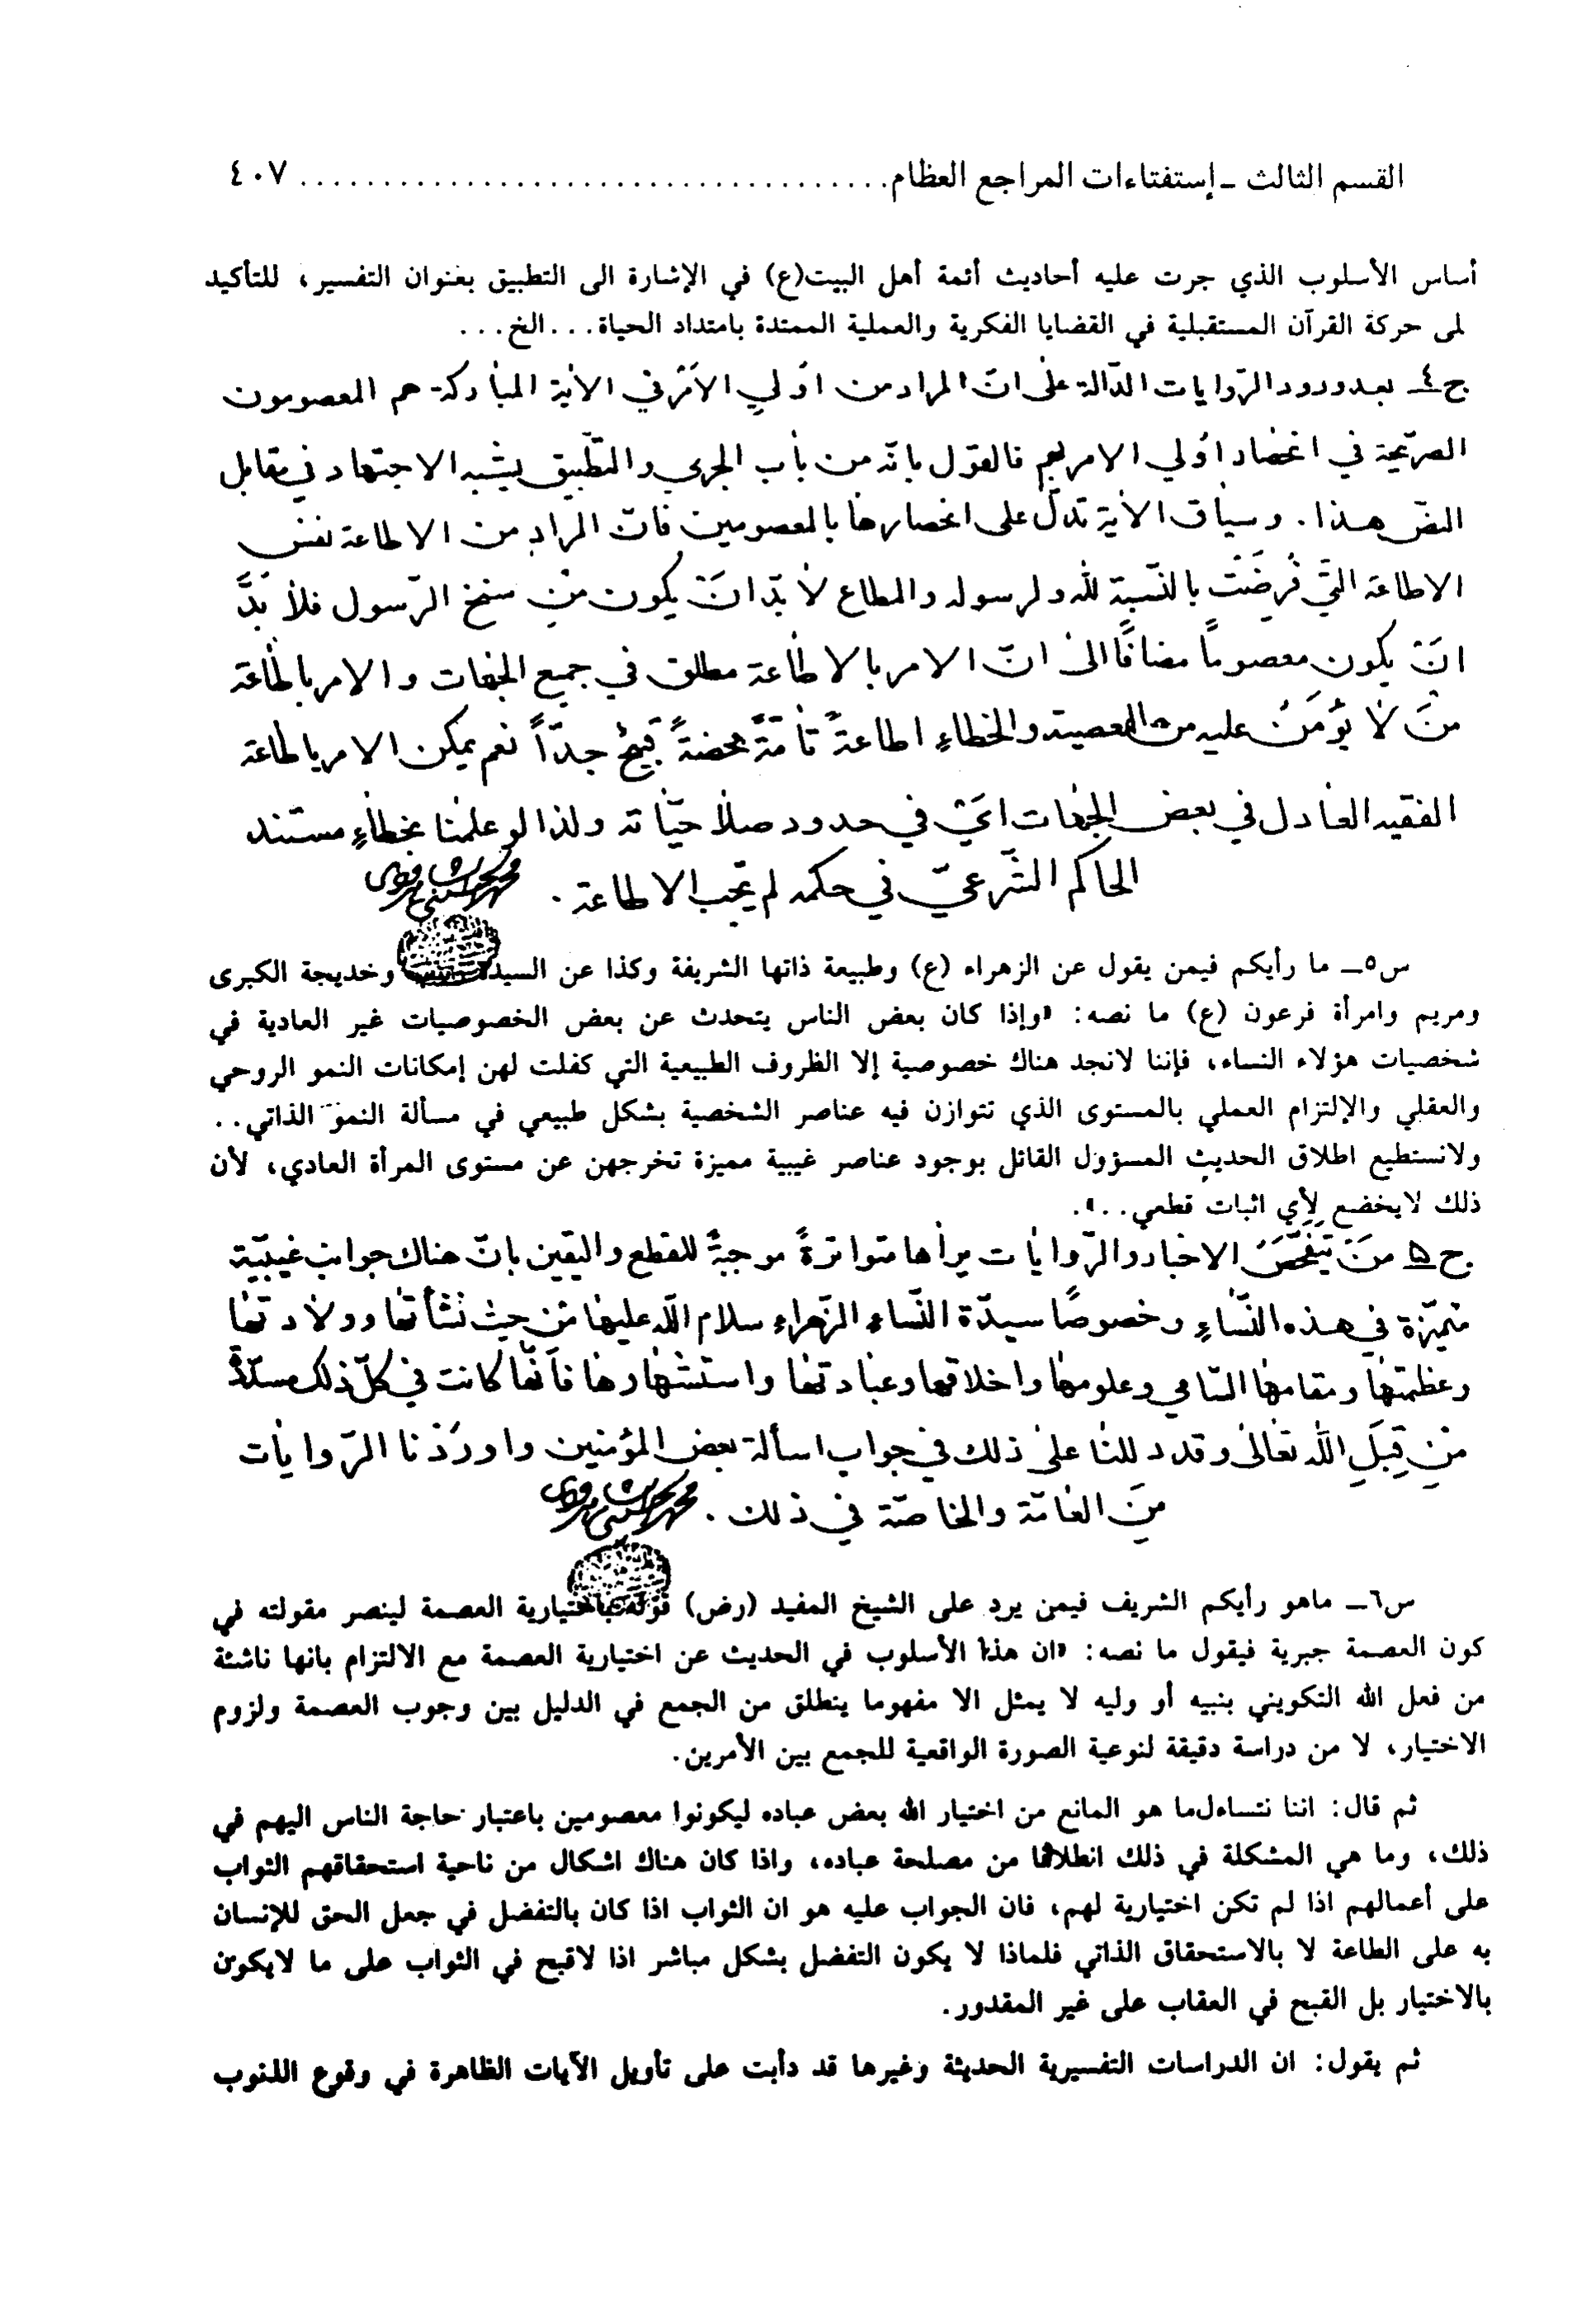 القسم الثالث ـ إستفتاءات المراجع العظام .................................... ٤٠٧
أساس الأسلوب الذي جرت عليه أحاديث أئمة أهل البيت(ع) في الإشارة الى التطبيق بعنوان التفسير، للتأكيد
لى حركة القرآن المستقبلية في القضايا الفكرية والعملية الممتدة بامتداد الحياة...الخ...
ج٤ـ بعد ورود الرّوايات الدّالة على انّ المراد من اُولي الاَمْر في الآية المباركة هم المعصومون
الصريحة في انحصار اُولي الامر بهم فالقول بانّه من باب الجري والتطبيق يشبه الاجتهاد في مقابل
النصّ هذا. وسياق الآية تدلّ على انحصارها بالمعصومين فانّ المراد من الاطاعة نفس
الاطاعة التي فُرِضَتْ بالنّسبة لله ولرسوله والمطاع لا بدّ انْ يكون مِن سنخ الرّسول فلا بُدَّ
انْ يكون معصوماً مضافاً الى انّ الامر بالاطاعة مطلق في جميع الجهات والامر باطاعة
مَنْ لا يُؤْمَنُ عليه من المعصية والخطاءِ اطاعةً تامّةً محضةً قبيحٌ جدّاً نعم يمكن الامر باطاعة
الفقيه العادل في بعض الجهات ايْ في حدود صلاحيّاته ولذا لو علمنا بخطاءِ مستند
الحاكم الشّرعيّ في حكمه لم يجب الاطاعة.
س٥ـ ما رأيكم فيمن يقول عن الزهراء (ع) وطبيعة ذاتها الشريفة وكذا عن السيدة وخديجة الكبرى
ومريم وامرأة فرعون (ع) ما نصه: «وإذا كان بعض الناس يتحدث عن بعض الخصوصيات غير العادية في
شخصيات هؤلاء النساء، فإننا لانجد هناك خصوصية إلا الظروف الطبيعية التي كفلت لهن إمكانات النمو الروحي
والعقلي والإلتزام العملي بالمستوى الذي تتوازن فيه عناصر الشخصية بشكل طبيعي في مسألة النمو الذاتي..
ولانستطيع اطلاق الحديث المسؤول القائل بوجود عناصر غيبية مميزة تخرجهن عن مستوى المرأة العادي، لأن
ذلك لايخضع لأي اثبات قطعي..».
ج٥ مَنْ يَتَفَحَّصُ الاخبار والرّوايات يراها متواترةً موجبةً للقطع واليقين بانّ هناك جوانب غيبيّة
متميّزة في هذه النّساءِ وخصوصًا سيدّة النّساء الزّهراء سلام اللّه عليها مِن حيث نَشْأتها وولادتها
وعظمتها ومقامها السّامي وعلومها واخلاقها وعبادتها واستشهادها فانّها كانت في كلّ ذلك مسدّدةً
مِن قِبَلِ اللّه تعالى وقد دللنا على ذلك في جواب اسألة بعض المؤمنين واورَدْنا الرّوايات
مِنَ العامّة والخاصّة في ذلك.
س٦ـ ماهو رأيكم الشريف فيمن يرد على الشيخ المفيد (رض) قوله باختيارية العصمة لينصر مقولته في
كون العصمة جبرية فيقول ما نصه: «ان هذا الأسلوب في الحديث عن اختيارية العصمة مع الالتزام بانها ناشئة
من فعل الله التكويني بنبيه أو وليه لا يمثل الا مفهوما ينطلق من الجمع في الدليل بين وجوب العصمة ولزوم
الاختيار، لا من دراسة دقيقة لنوعية الصورة الواقعية للجمع بين الأمرين.
ثم قال: اننا نتساءل ما هو المانع من اختيار الله بعض عباده ليكونوا معصومين باعتبار حاجة الناس اليهم في
ذلك، وما هي المشكلة في ذلك انطلاقا من مصلحة عباده، واذا كان هناك اشكال من ناحية استحقاقهم الثواب
على أعمالهم اذا لم تكن اختيارية لهم، فان الجواب عليه هو ان الثواب اذا كان بالتفضل في جعل الحق للإنسان
به على الطاعة لا بالاستحقاق الذاتي فلماذا لا يكون التفضل بشكل مباشر اذا لاقبح في الثواب على ما لايكون
بالاختيار بل القبح في العقاب على غير المقدور.
ثم يقول: ان الدراسات التفسيرية الحديثة وغيرها قد دأبت على تأويل الآيات الظاهرة في وقوع اللنوب